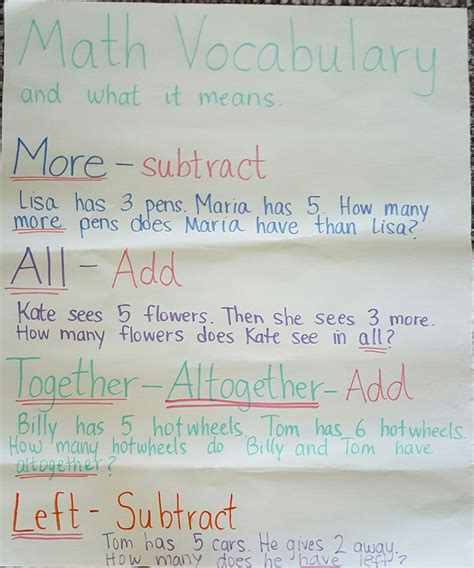 Math Vocabulary
and what it means.
More - subtract
Lisa has 3 pens. Maria has 5. How many
more pens does Maria have than Lisa?
All - Add
Kate sees 5 flowers. Then she sees 3 more.
How many flowers does Kate see in all?
Together - Altogether - Add
Billy has 5 hotwheels. Tom has 6 hotwheels.
How many hotwheels do Billy and Tom have
altogether?
Left - Subtract
Tom has 5 cars. He gives 2 away.
How many does he have left?